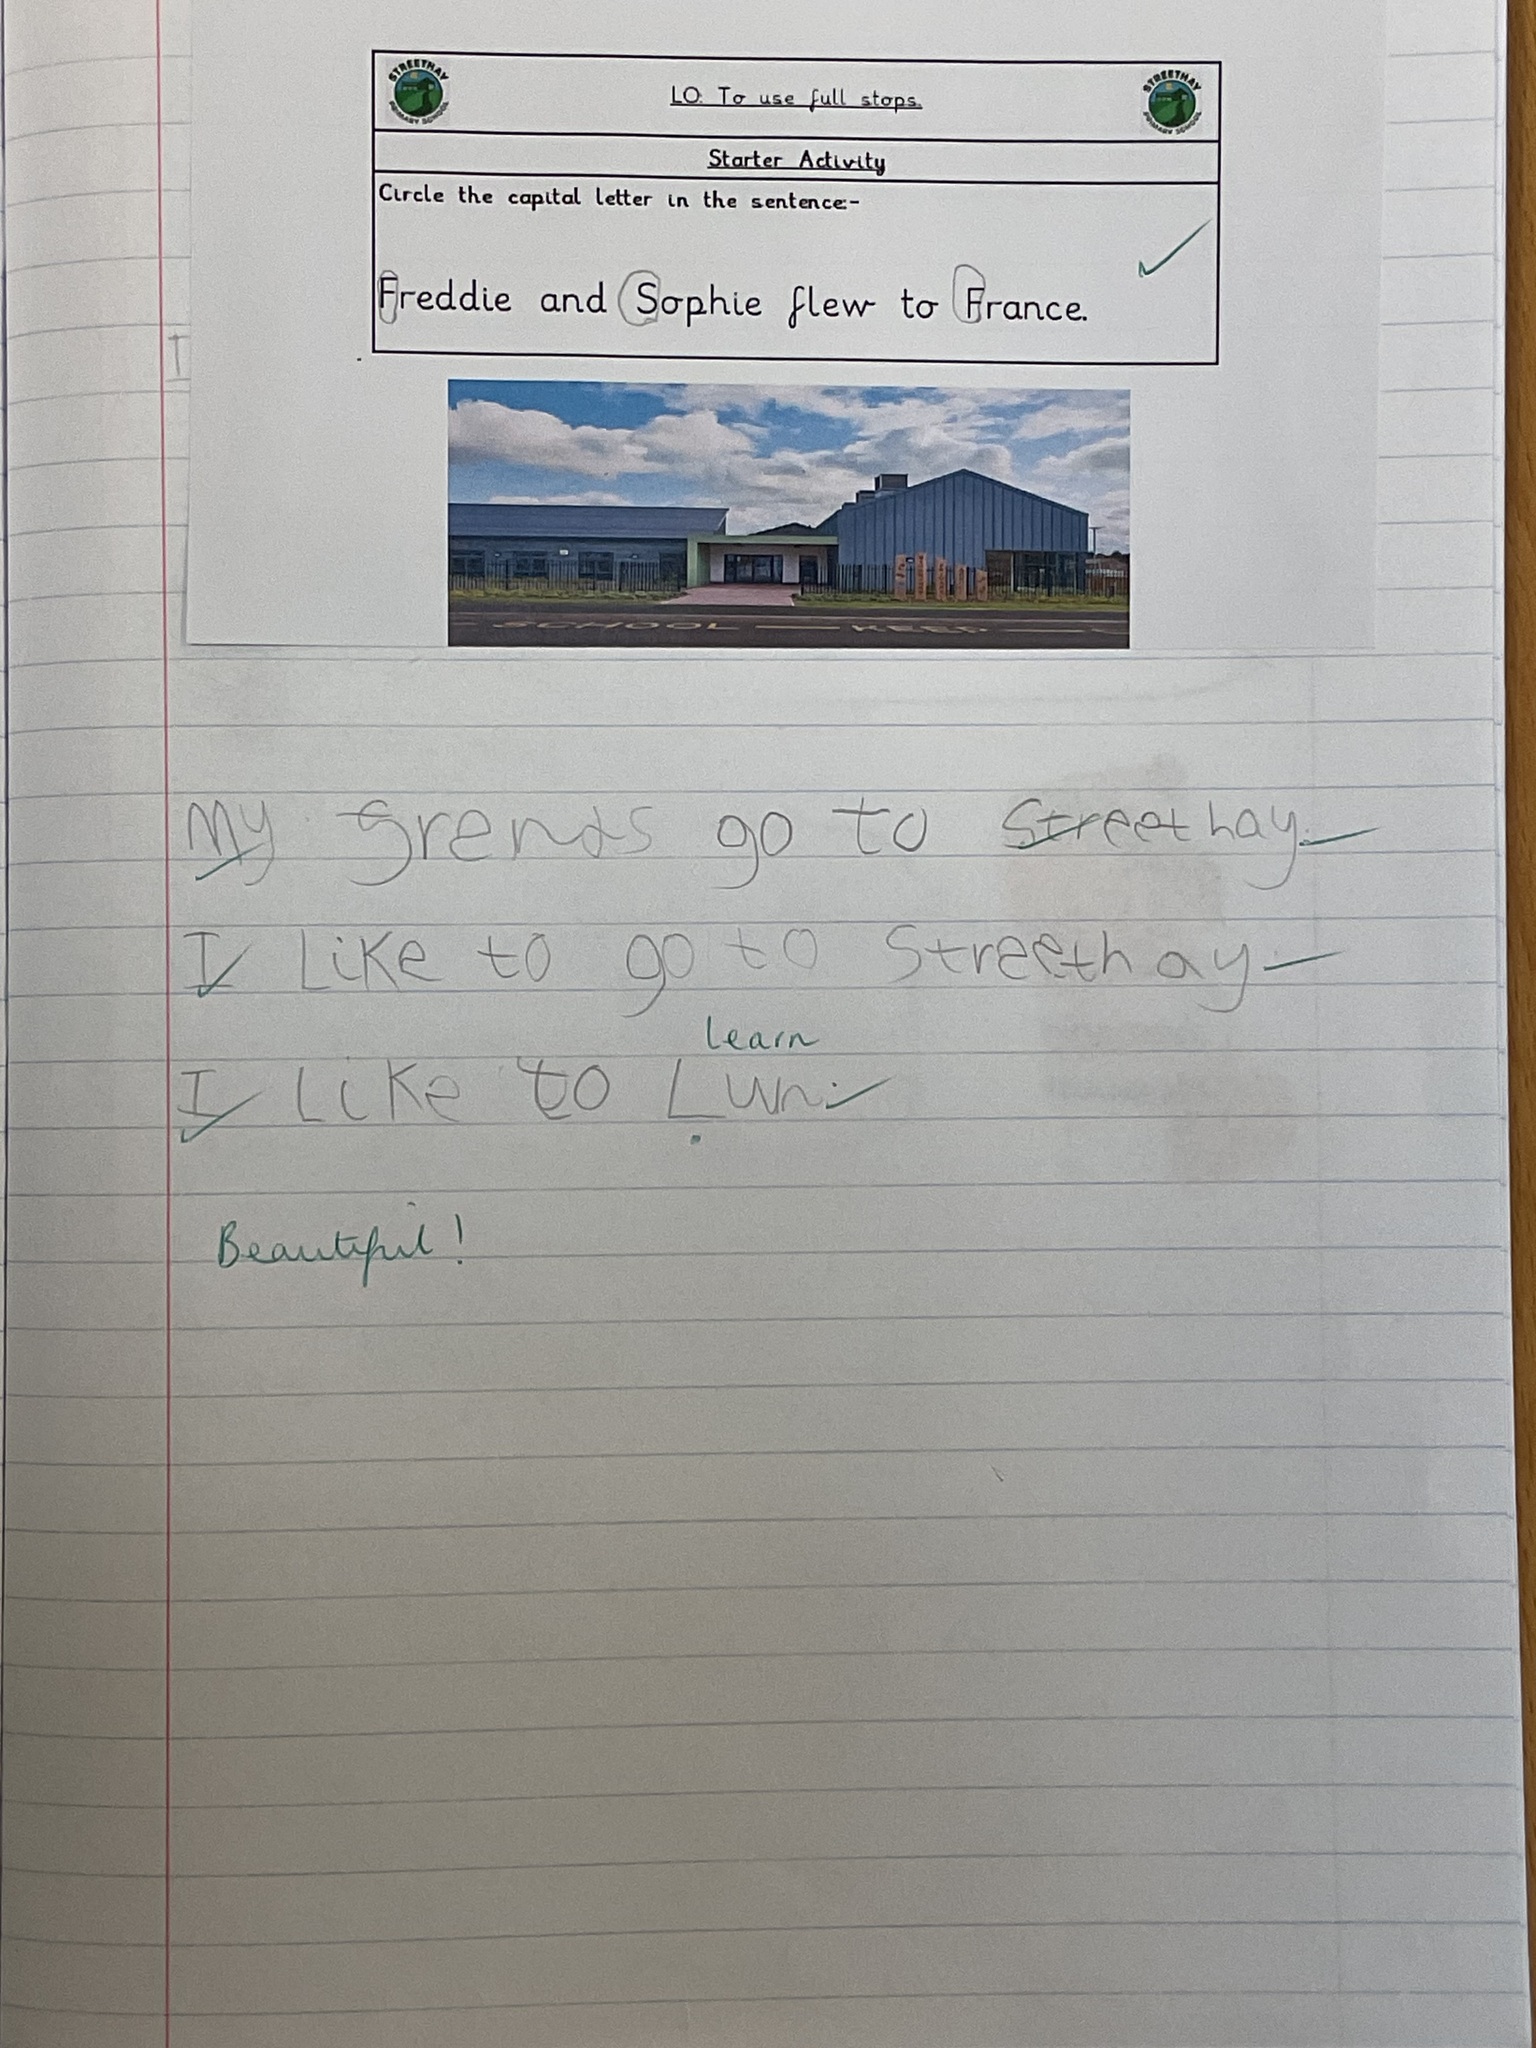 STREETHAY PRIMARY SCHOOL
LO: To use full stops.
STREETHAY PRIMARY SCHOOL
Starter Activity
Circle the capital letter in the sentence:-
Freddie and Sophie flew to France.
SCHOOL KEEP
My frends go to Streethay.
I Like to go to Streethay
learn
I Like to Lun.
Beautiful!